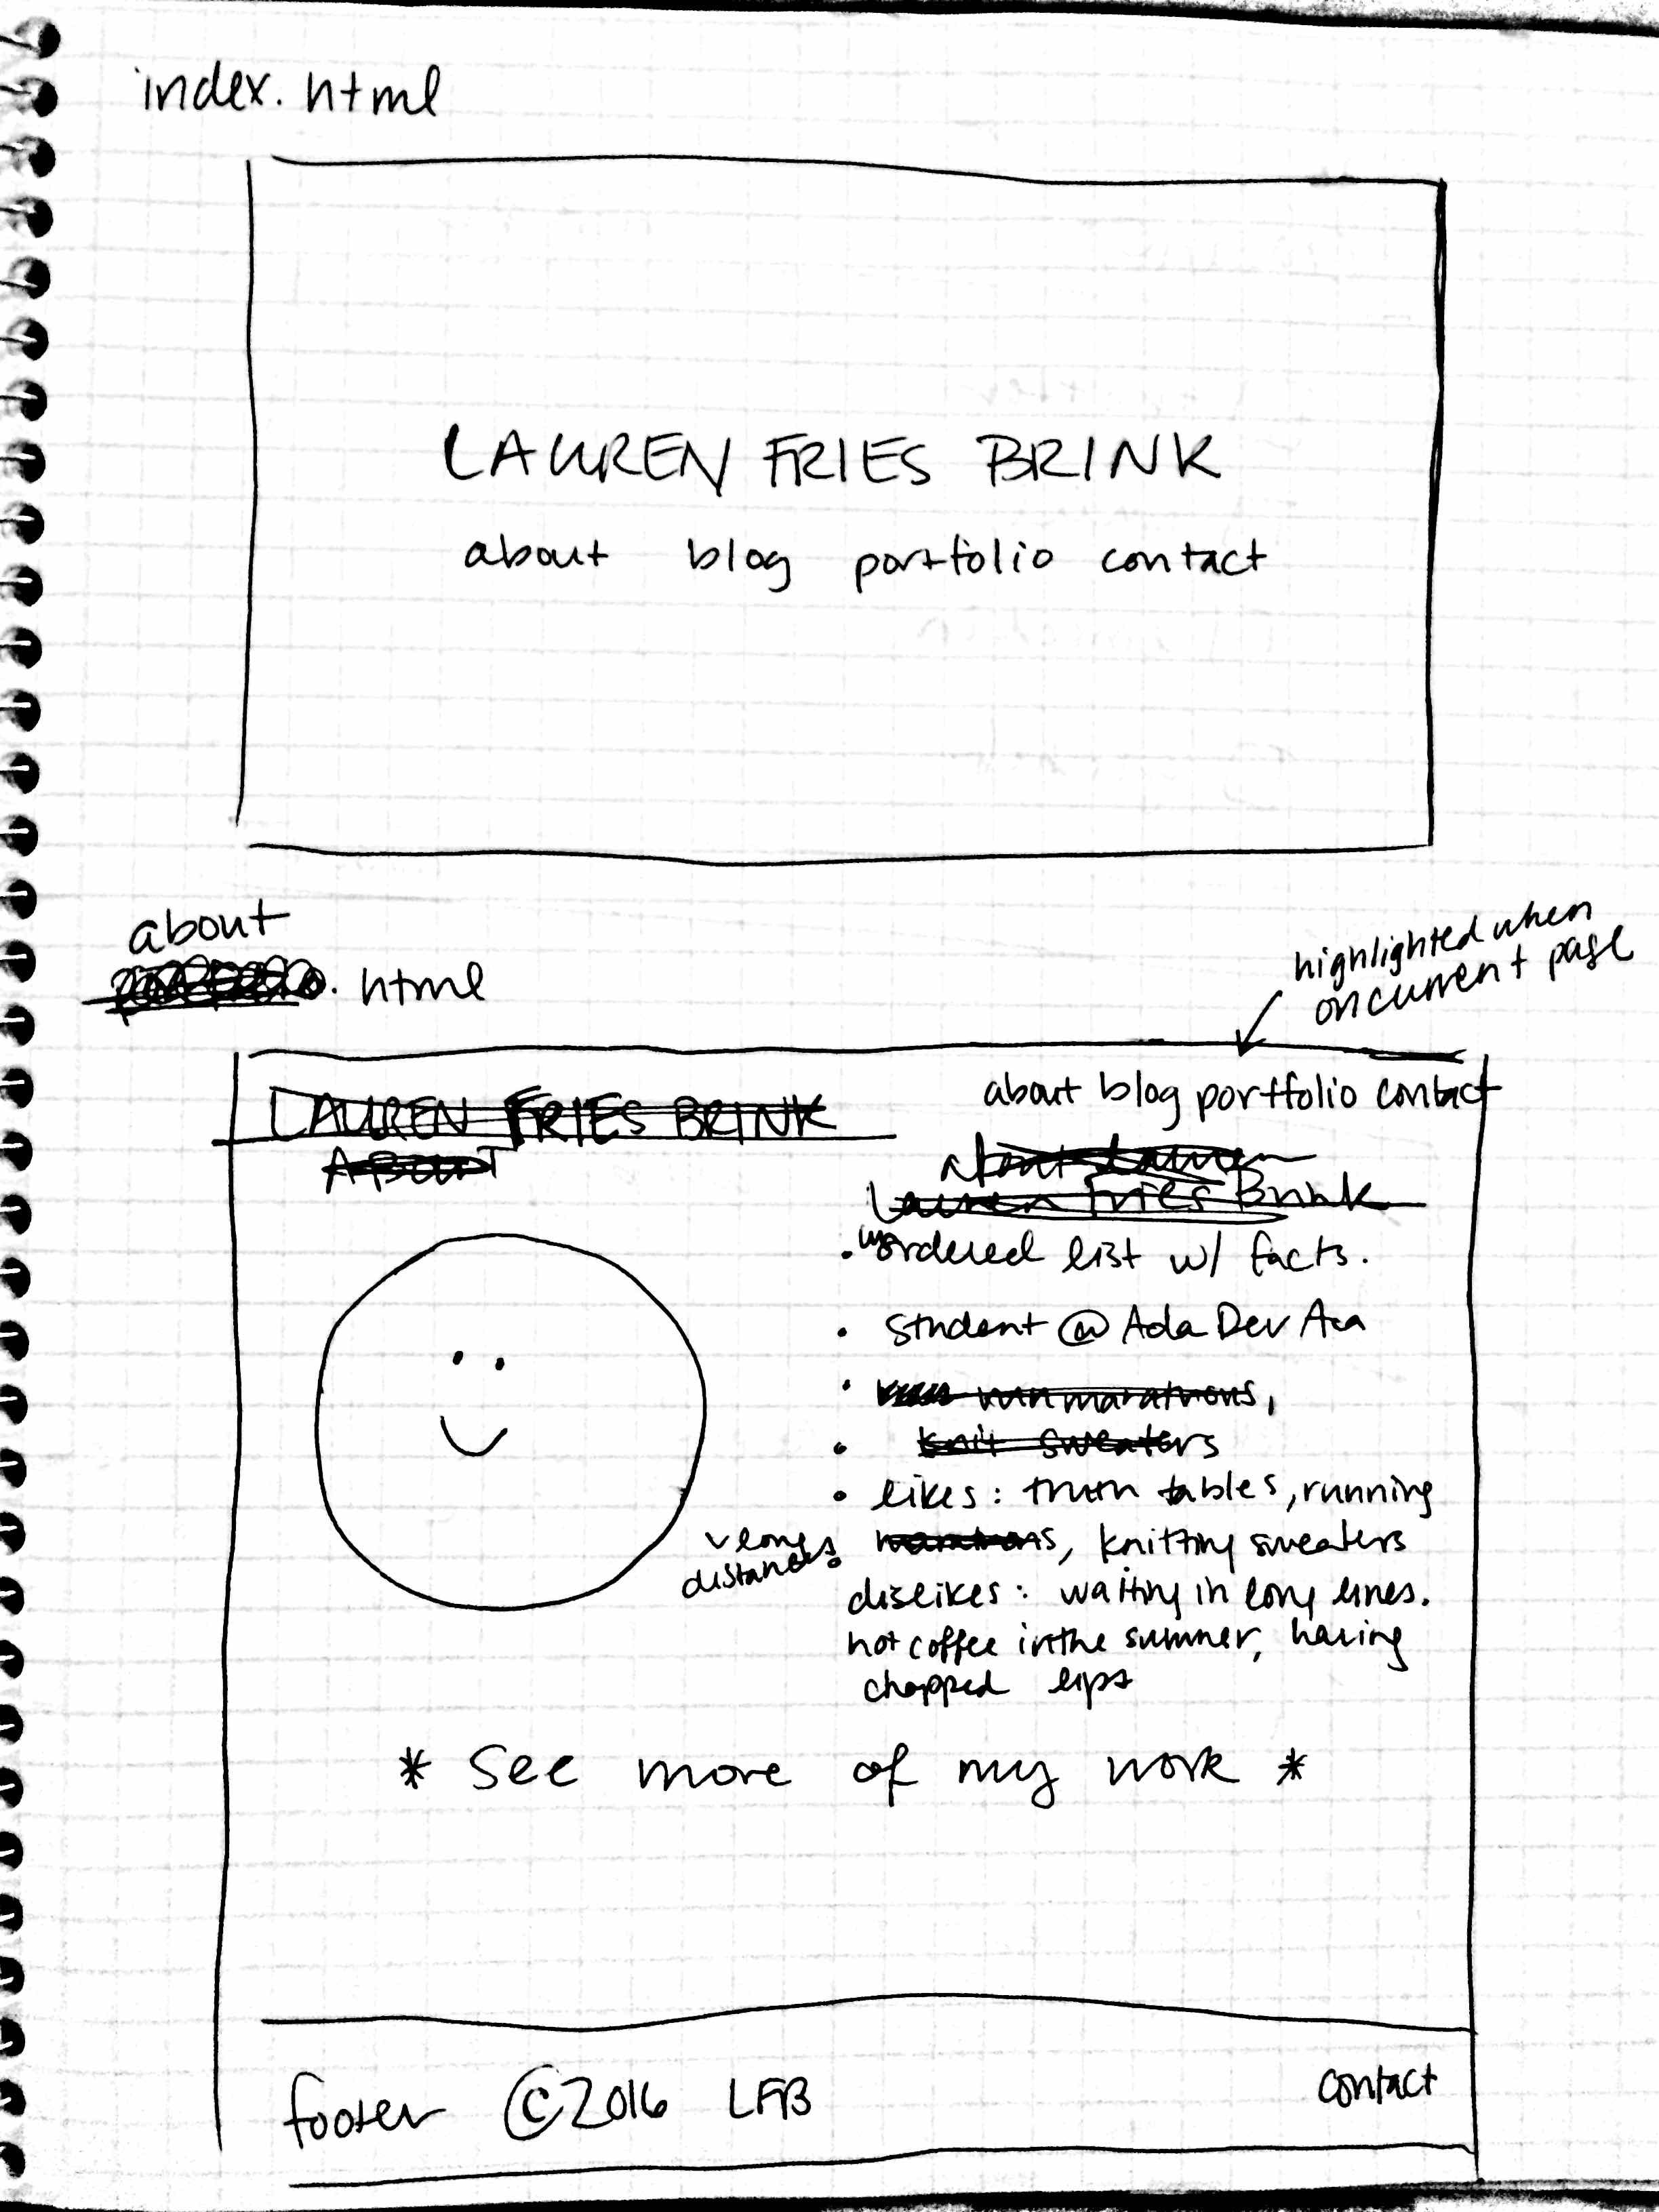 index.html
LAUREN FRIES BRINK
about blog portfolio contact
about
.html
highlighted when
on current page
LAUREN FRIES BRINK
about blog portfolio contact
ABOUT
about Lauren
Lauren Fries Brink
• unordered list w/ facts.
• Student @ Ada Dev Aca
• run marathons,
• knit sweaters
• likes: truth tables, running
v long
distances
marathons, knitting sweaters
• dislikes: waiting in long lines.
hot coffee in the summer, having
chapped lips
* See more of my work *
footer ©2016 LFB
contact